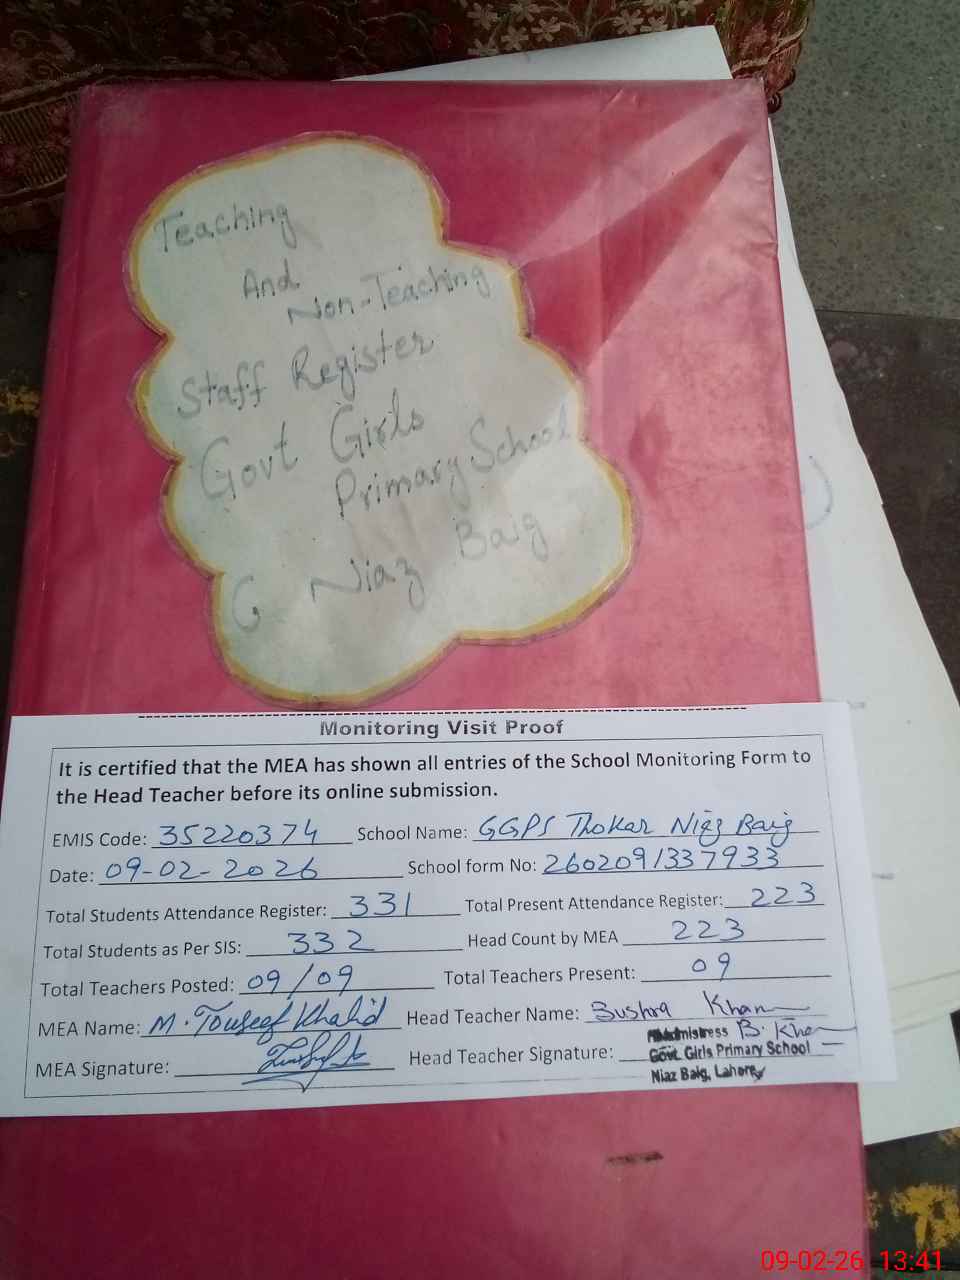 Teaching
And
Non-Teaching
Staff Register
Govt Girls
Primary School
G Niaz Baig
Monitoring Visit Proof
It is certified that the MEA has shown all entries of the School Monitoring Form to
the Head Teacher before its online submission.
EMIS Code: 35220374 School Name: GGPS Thokar Niaz Baig
Date: 09-02-2026 School form No: 2602091337933
Total Students Attendance Register: 331 Total Present Attendance Register: 223
Total Students as Per SIS: 332 Head Count by MEA 223
Total Teachers Posted: 09/09 Total Teachers Present: 09
MEA Name: M. Touseef Khalid Head Teacher Name: Bushra Khan
MEA Signature: Head Teacher Signature: B. Khan
Headmistress
Govt. Girls Primary School
Niaz Baig, Lahore
09-02-26 13:41